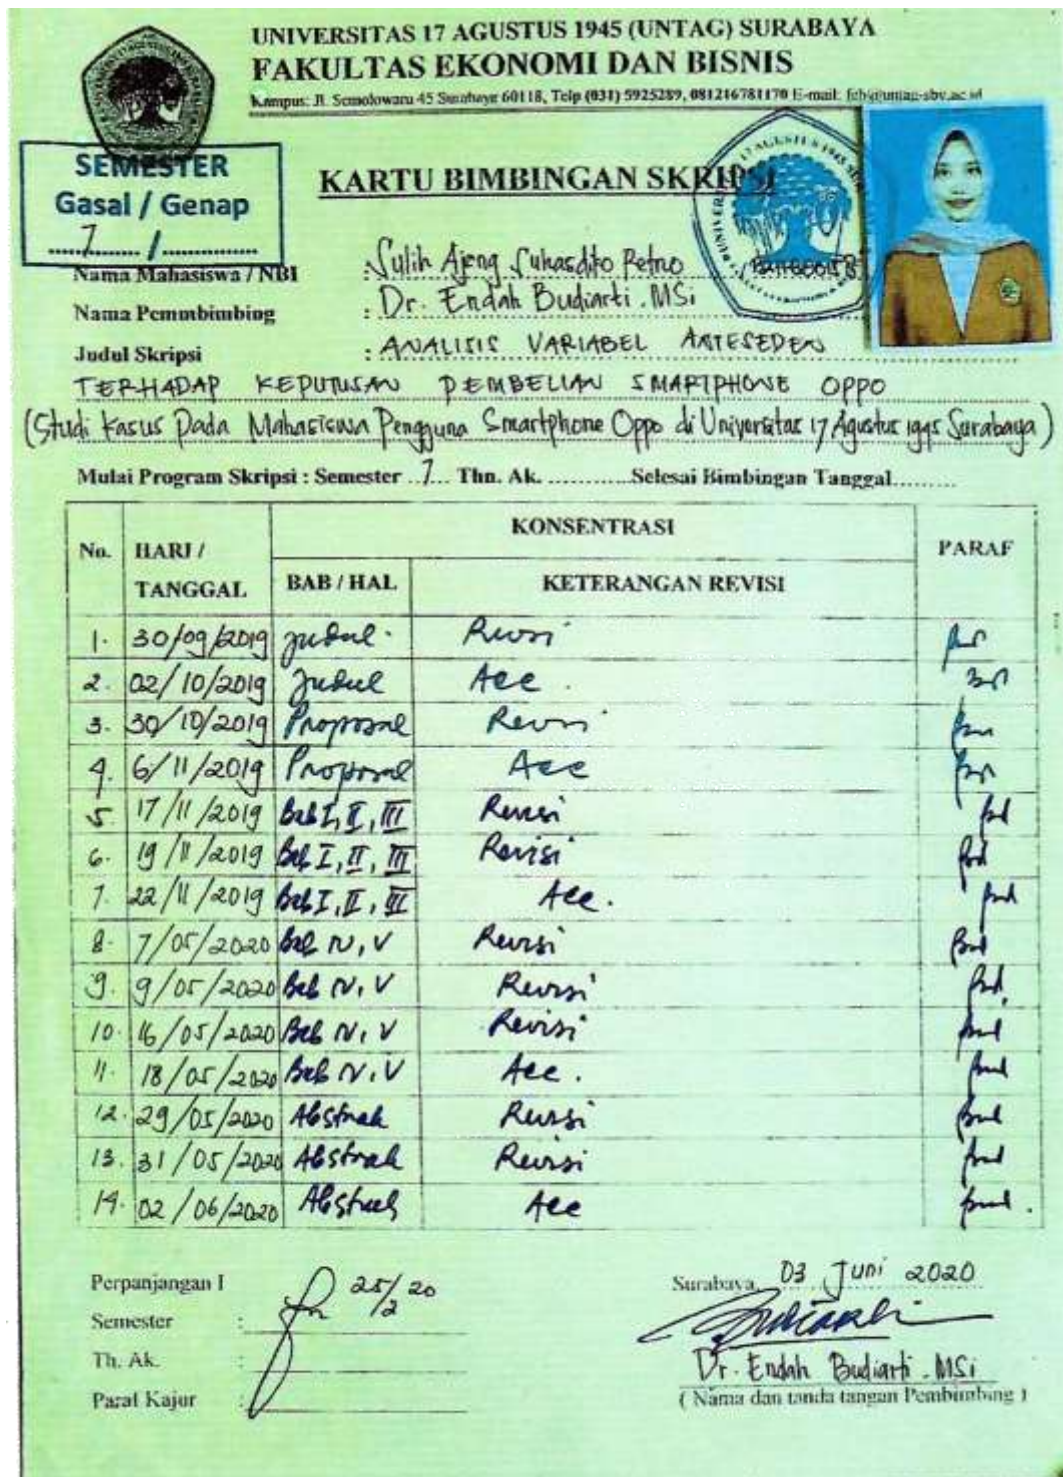 UNIVERSITAS 17 AGUSTUS 1945 (UNTAG) SURABAYA
FAKULTAS EKONOMI DAN BISNIS
Kampus: Jl. Semolowaru 45 Surabaya 60118, Telp (031) 5925289, 081216781170 E-mail: feb@untag-sby.ac.id
SEMESTER
Gasal / Genap
7 /
KARTU BIMBINGAN SKRIPSI
Nama Mahasiswa / NBI : Sulih Ajeng Suhasdito Retno /
Nama Pemmbimbing : Dr. Endah Budiarti . MSi
Judul Skripsi : ANALISIS VARIABEL ANTESEDEN
TERHADAP KEPUTUSAN PEMBELIAN SMARTPHONE OPPO
(Studi Kasus Pada Mahasiswa Pengguna Smartphone Oppo di Universitas 17 Agustus 1945 Surabaya)
Mulai Program Skripsi : Semester 7 Thn. Ak. ............ Selesai Bimbingan Tanggal.........
KONSENTRASI
No. HARI / TANGGAL BAB / HAL KETERANGAN REVISI PARAF
1. 30/09/2019 judul Revisi
2. 02/10/2019 Judul Acc.
3. 30/10/2019 Proposal Revisi
4. 6/11/2019 Proposal Acc
5. 17/11/2019 Bab I, II, III Revisi
6. 19/11/2019 Bab I, II, III Revisi
7. 22/11/2019 Bab I, II, III Acc.
8. 7/05/2020 Bab IV, V Revisi
9. 9/05/2020 Bab IV, V Revisi
10. 16/05/2020 Bab IV, V Revisi
11. 18/05/2020 Bab IV, V Acc.
12. 29/05/2020 Abstrak Revisi
13. 31/05/2020 Abstrak Revisi
14. 02/06/2020 Abstrak Acc
Perpanjangan I 25/2 20
Surabaya, 03 Juni 2020
Semester :
Th. Ak. :
Dr. Endah Budiarti . MSi
Paraf Kajur :
( Nama dan tanda tangan Pembimbing )